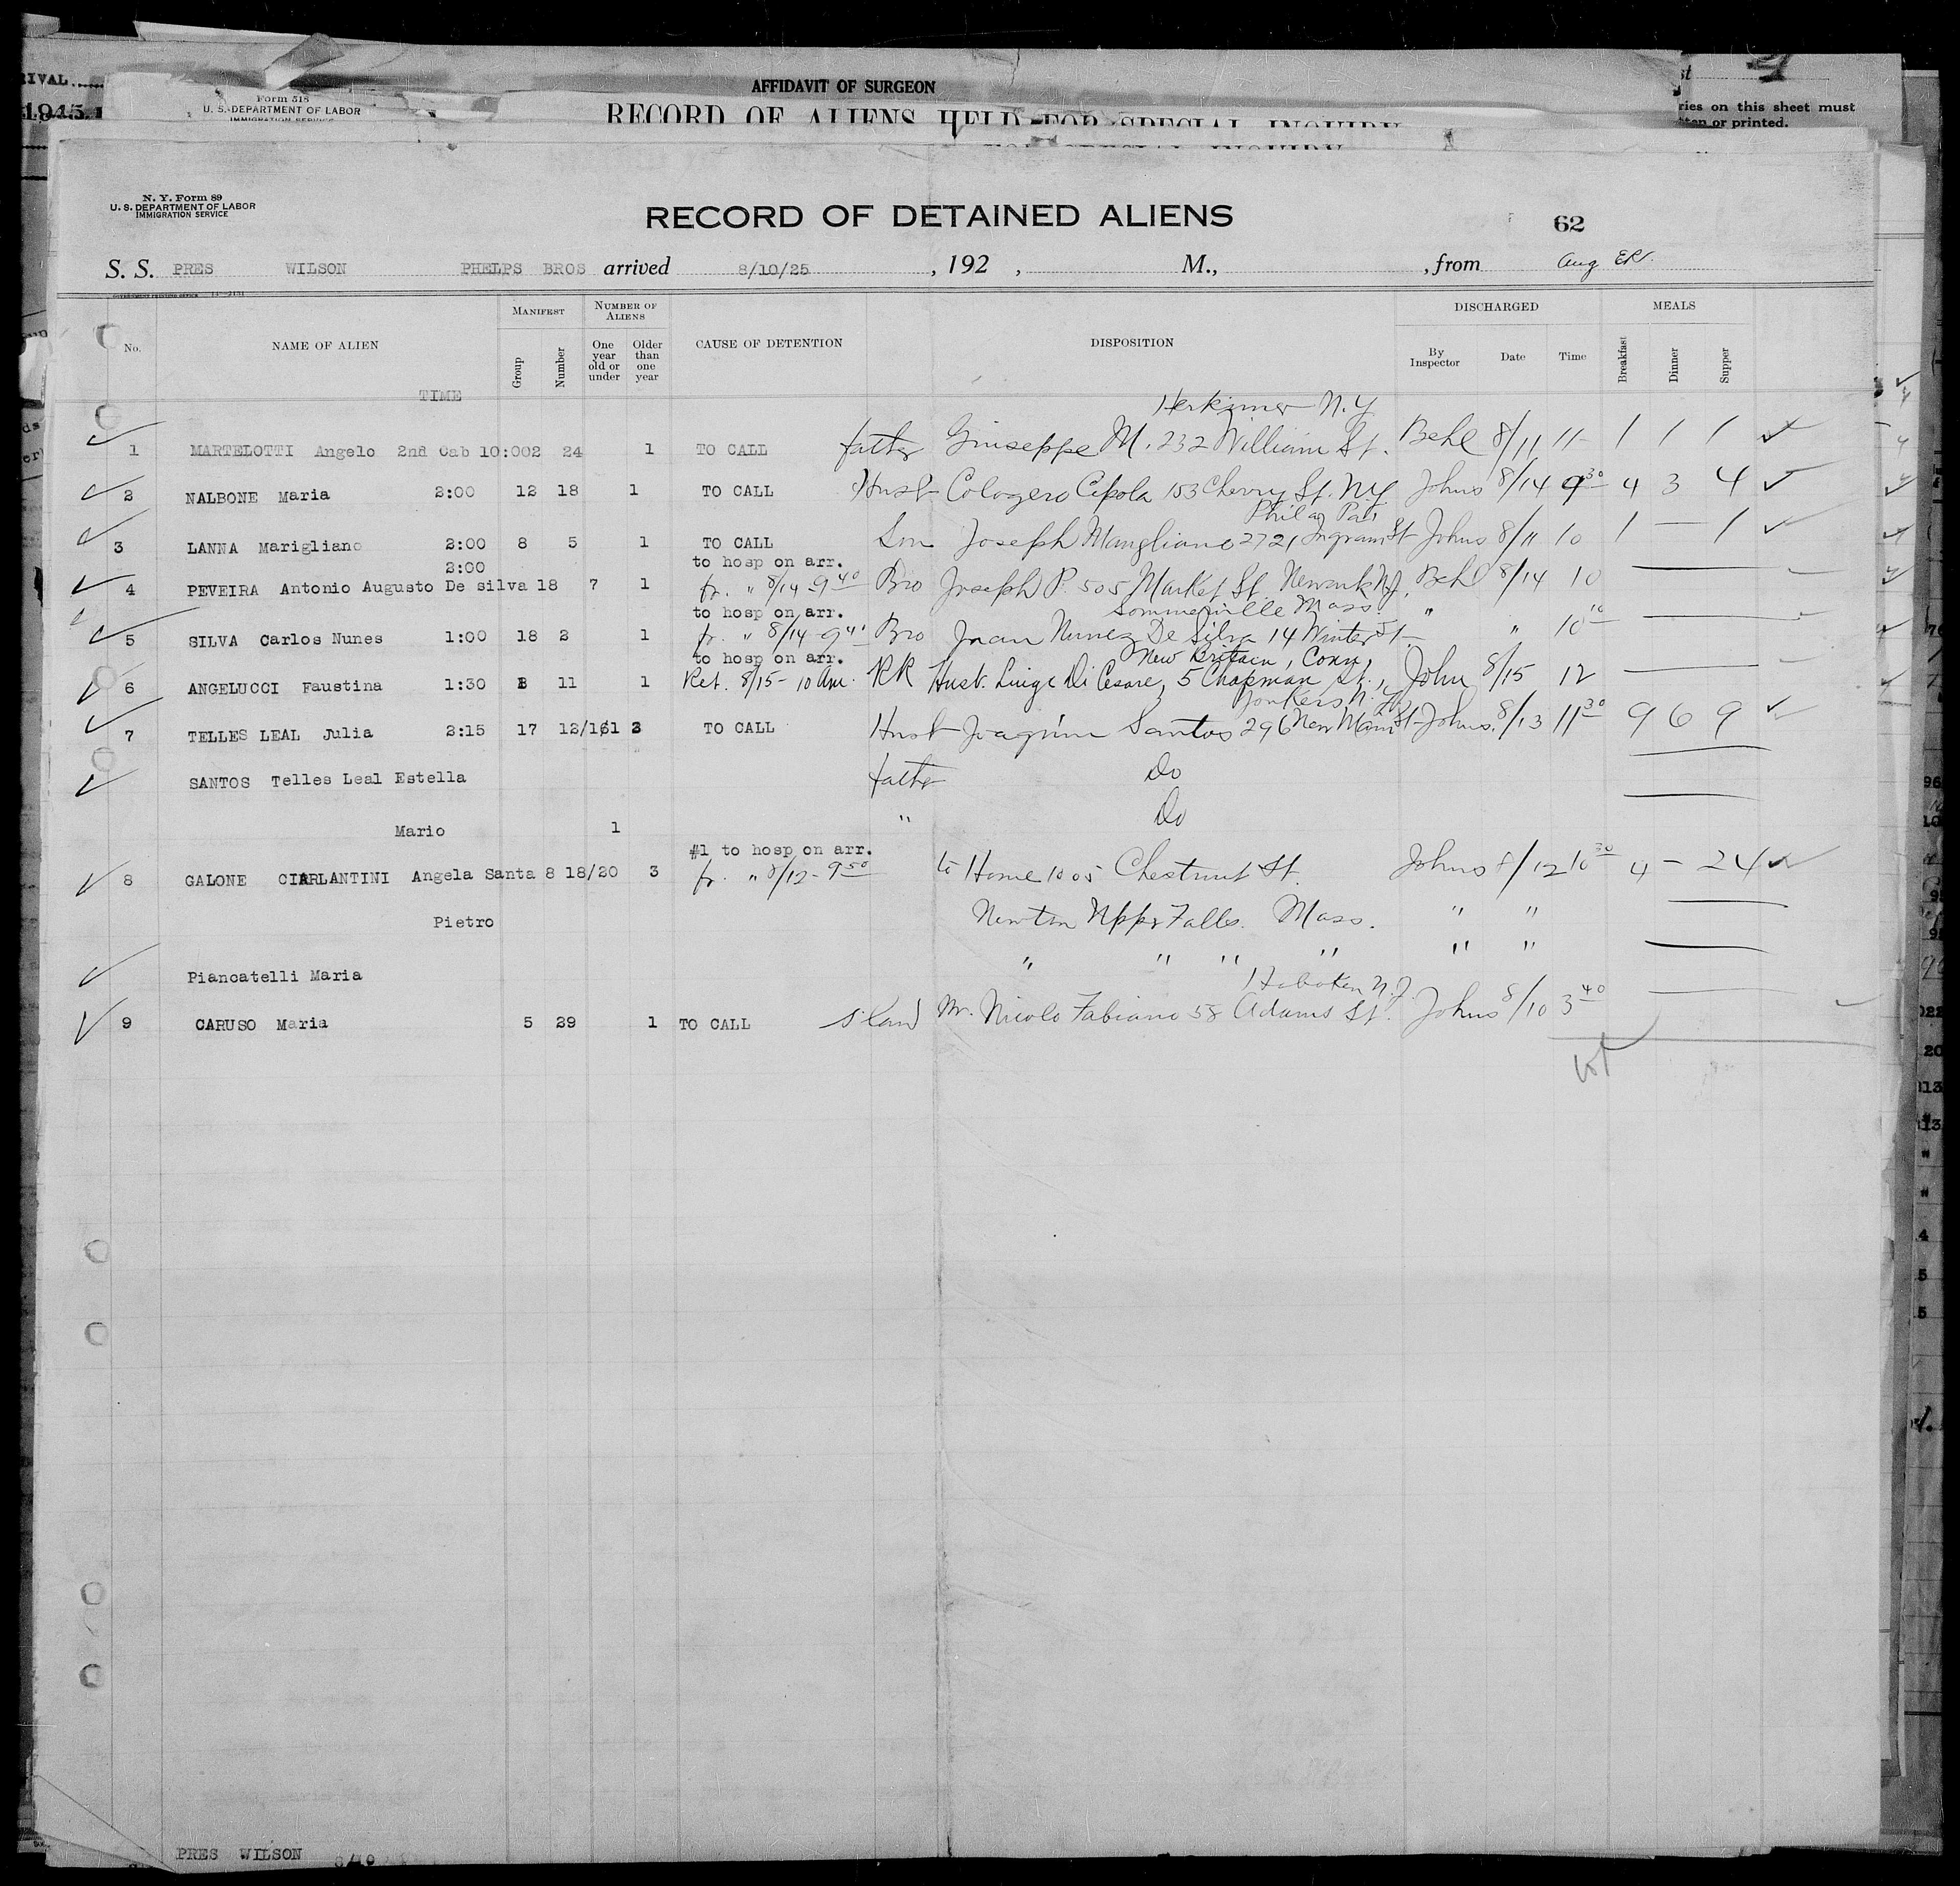 RIVAL
1945.
Form 518
U. S. DEPARTMENT OF LABOR
IMMIGRATION SERVICE
AFFIDAVIT OF SURGEON
RECORD OF ALIENS HELD FOR SPECIAL INQUIRY
ries on this sheet must
or printed.
N. Y. Form 89
U. S. DEPARTMENT OF LABOR
IMMIGRATION SERVICE
RECORD OF DETAINED ALIENS
62
S. S. PRES WILSON PHELPS BROS arrived 8/10/25, 192 , M., , from Aug
No. NAME OF ALIEN MANIFEST Group Number NUMBER OF ALIENS One year old or under Older than one year CAUSE OF DETENTION DISPOSITION DISCHARGED By Inspector Date Time MEALS Breakfast Dinner Supper
TIME
Herkimer N.Y
1 MARTELOTTI Angelo 2nd Cab 10:002 24 1 TO CALL father Giuseppe M. 232 William St. Behl 8/11 11- 1 1 1
2 NALBONE Maria 2:00 12 18 1 TO CALL Husb Cologero Cipola 153 Cherry St. N.Y Johns 8/14 9 30 4 3 4
Phila Pa
3 LANNA Marigliano 2:00 8 5 1 TO CALL Son Joseph Mangliano 2721 Ingram St Johns 8/11 10 1 — 1
2:00 to hosp on arr.
4 PEVEIRA Antonio Augusto De silva 18 7 1 fr. " 8/14 - 9 40 Bro Joseph P. 505 Market St. Newark N.J. Behl 8/14 10
to hosp on arr. Sommerville Mass.
5 SILVA Carlos Nunes 1:00 18 2 1 fr. " 8/14 - 9 41 Bro Juan Nunez De Silva 14 Winter St " " 10 10
to hosp on arr. New Britain, Conn,
6 ANGELUCCI Faustina 1:30 11 1 Ret. 8/15 - 10 Am. RR Husb. Luige Di Cesare, 5 Chapman St., John 8/15 12
Yonkers N.Y
7 TELLES LEAL Julia 2:15 17 12/161 2 TO CALL Husb Joaquim Santos 296 New Main St Johns. 8/13 11 30 9 6 9
SANTOS Telles Leal Estella father Do
Mario 1 " Do
#1 to hosp on arr.
8 GALONE CIARLANTINI Angela Santa 8 18/20 3 fr. " 8/12 - 9 50 to Home 1005 Chestnut St. Johns 8/12 10 30 4 - 24
Pietro Newton Uppr Falls. Mass. " "
Piancatelli Maria " " " " " "
Hoboken N.J.
9 CARUSO Maria 5 29 1 TO CALL Mr. Nicolo Fabiano 58 Adams St. Johns 8/10 3 40
PRES WILSON 8/10